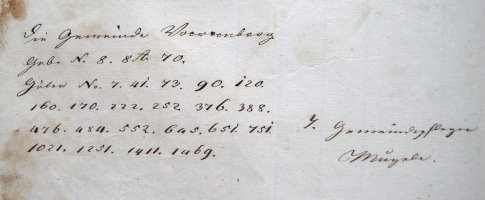 Die Gemeinde Vorrenberg
Geb. N. 8. 8A. 70.
Güter No. 7. 41. 73. 90. 120.
160. 170. 222. 252. 376. 388.
476. 484. 552. 645. 651. 751.
1021. 1251. 1411. 1469.
T. Gemeindepfleger
Mugele.